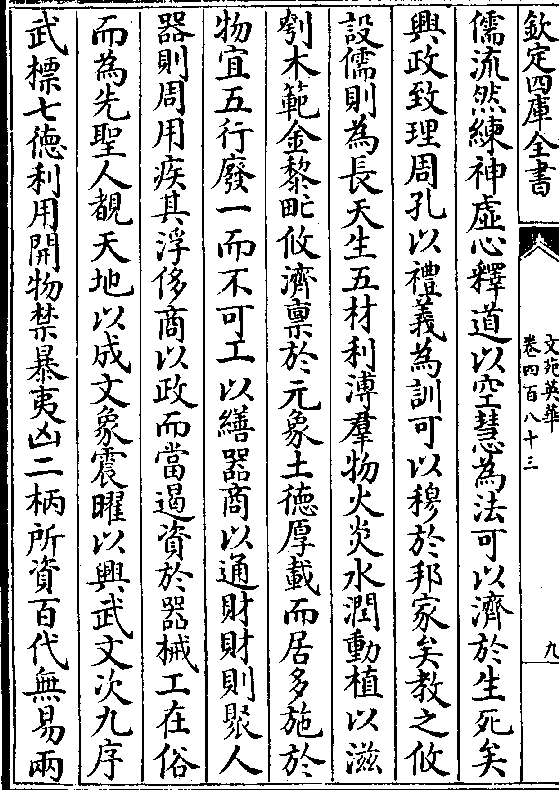 欽定四庫全書
文苑英華
卷四百八十三
九
儒流然練神虛心釋道以空慧為法可以濟於生死矣
興政致理周孔以禮義為訓可以穆於邦家矣教之攸
設儒則為長天生五材利溥羣物火炎水潤動植以滋
刳木範金黎甿攸濟稟於元象土德厚載而居多施於
物宜五行廢一而不可工以繕器商以通財財則聚人
器則周用疾其浮侈商以政而當遏資於器械工在俗
而為先聖人覩天地以成文象震曜以興武文次九序
武標七徳利用開物禁暴夷凶二柄所資百代無易兩